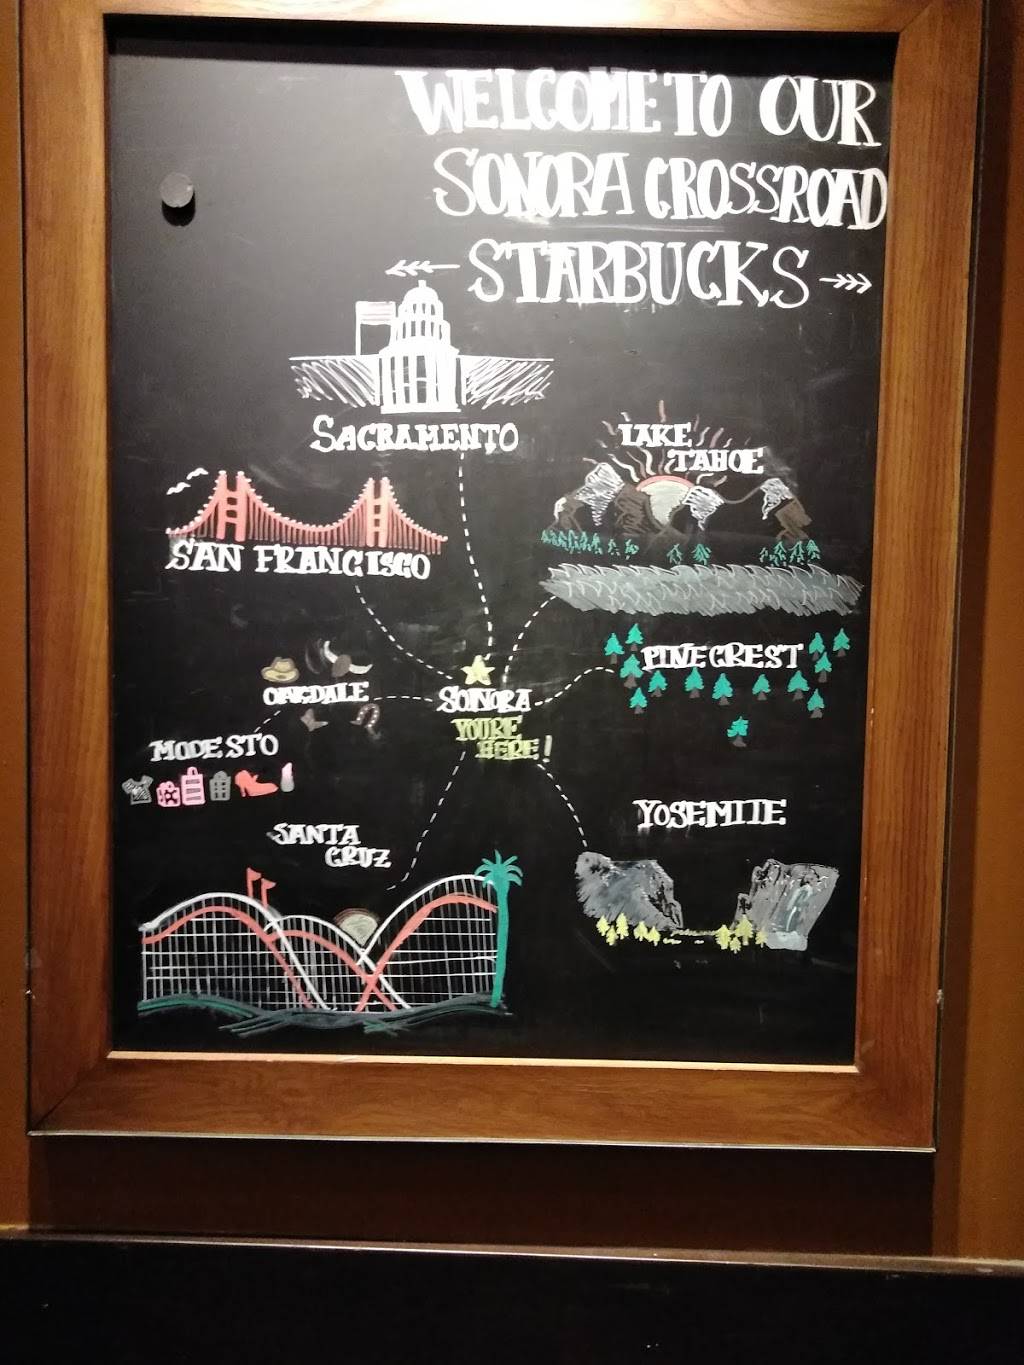 WELCOME TO OUR
SONORA CROSSROAD
STARBUCKS
SACRAMENTO
LAKE
TAHOE
SAN FRANCISCO
PINECREST
OAKDALE
SONORA
YOU'RE
HERE!
MODESTO
YOSEMITE
SANTA
CRUZ